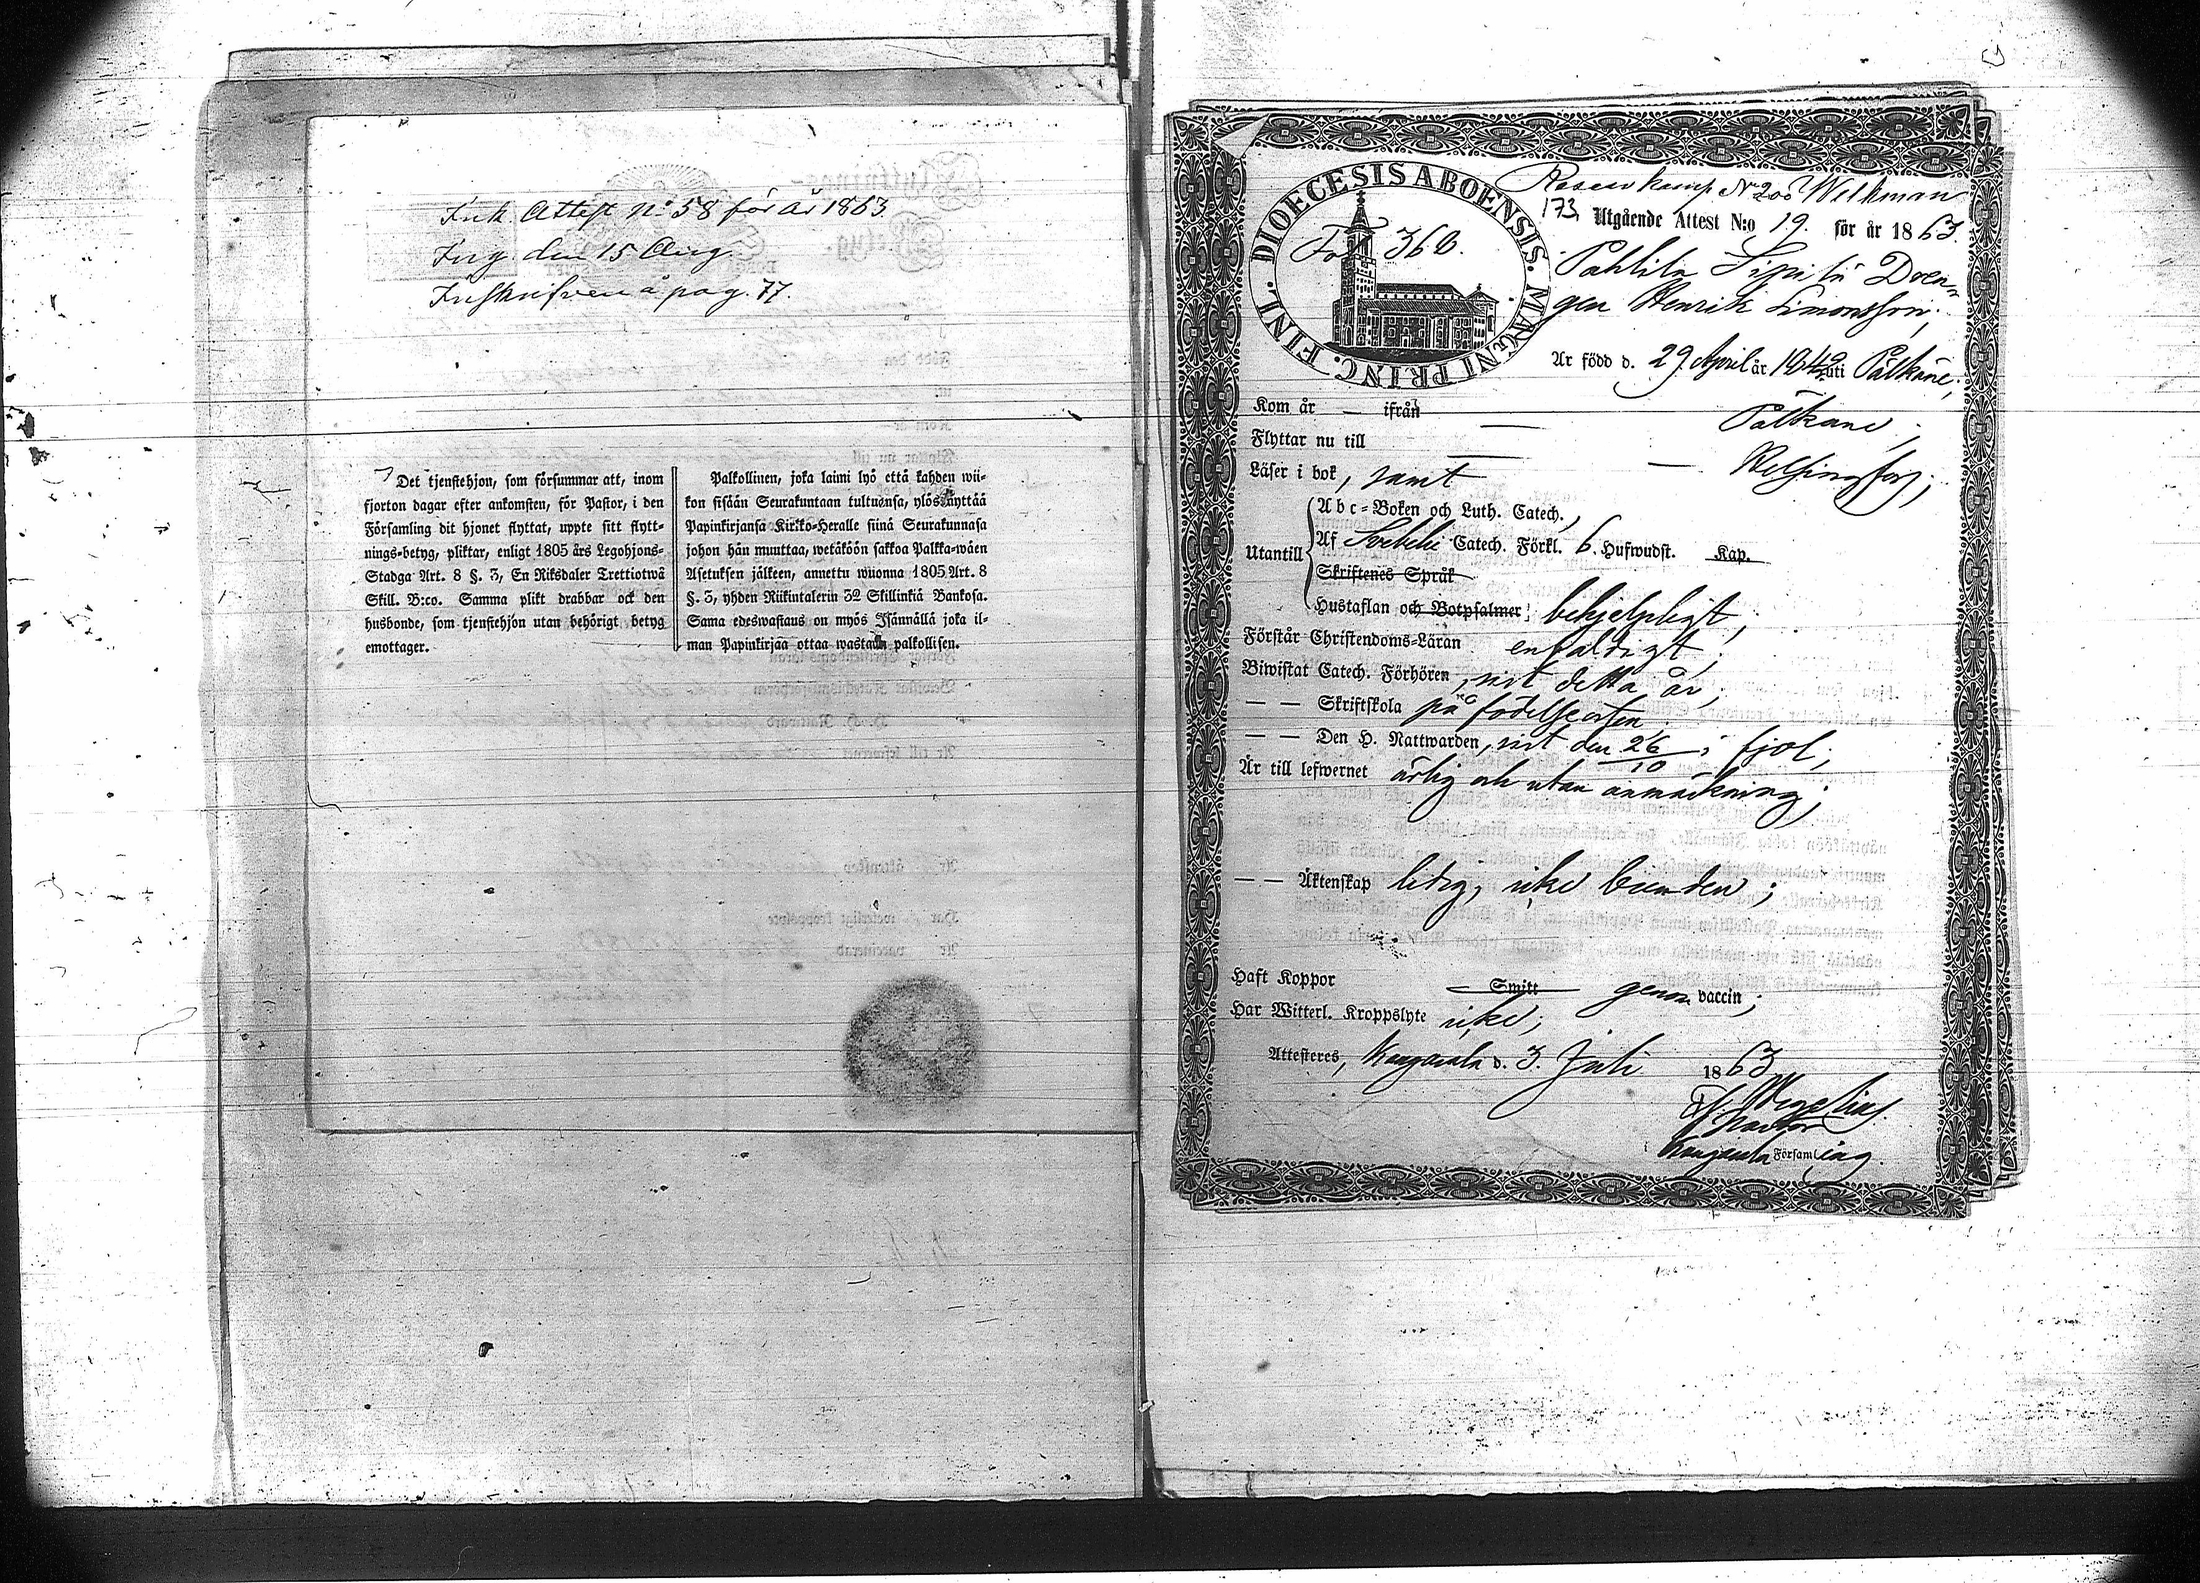 Ink. Attest No 58 för år 1863.
Ing. den 15 Aug.
Inskrifven å pag. 77.
Det tjenstehjon, som försummar att, inom
fjorton dagar efter ankomsten, för Pastor, i den
Församling dit hjonet flyttat, uppte sitt flytt-
nings-betyg, pliktar, enligt 1805 års Legohjons-
Stadga Art. 8 §. 3, En Riksdaler Trettiotwå
Skill. B:co. Samma plikt drabbar ock den
husbonde, som tjenstehjon utan behörigt betyg
emottager.
Palkollinen, joka laimi lyö että kahden wii-
kon sisään Seurakuntaan tultuansa, ylösnäyttää
Papinkirjansa Kirkko-Heralle siinä Seurakunnasa
johon hän muuttaa, wetäköön sakkoa Palkka-wäen
Asetuksen jälkeen, annettu wuonna 1805 Art. 8
§. 3, yhden Riikintalerin 32 Skillinkiä Bankosa.
Sama edeswastaus on myös Isännällä joka il-
man Papinkirjaa ottaa wastaan palkollisen.
DIOECESIS ABOENSIS. MAGNI PRINC. FINL.
Fol. 360.
No 200 Wellman
173, Utgående Attest N:o 19. för år 1863.
Pahlila Sipilä Dren-
gen Henrik Simonsson;
Är född d. 29 April år 1842 uti Pälkäne;
Kom år — ifrån — Pälkäne;
Flyttar nu till — — Helsingfors;
Läser i bok, samt
Utantill
Abc-Boken och Luth. Catech.,
Af Svebelii Catech. Förkl. 6. Hufwudst. Kap.
Skriftenes Språk
Hustaflan och Botpsalmer; behjelpligt;
Förstår Christendoms-Läran enfaldigt;
Biwistat Catech. Förhören, sist detta år;
— — Skriftskola på födelseorten
— — Den H. Nattwarden, sist den 26/10 i fjol;
Är till lefwernet ärlig och utan anmärkning;
— — Äktenskap ledig, icke bunden;
Haft Koppor — Smitt — genom vaccin;
Har Witterl. Kroppslyte icke;
Attesteres, Kangasala d. 3. Juli 1863
Wegelius.
Pastor
Kangasala Församling.